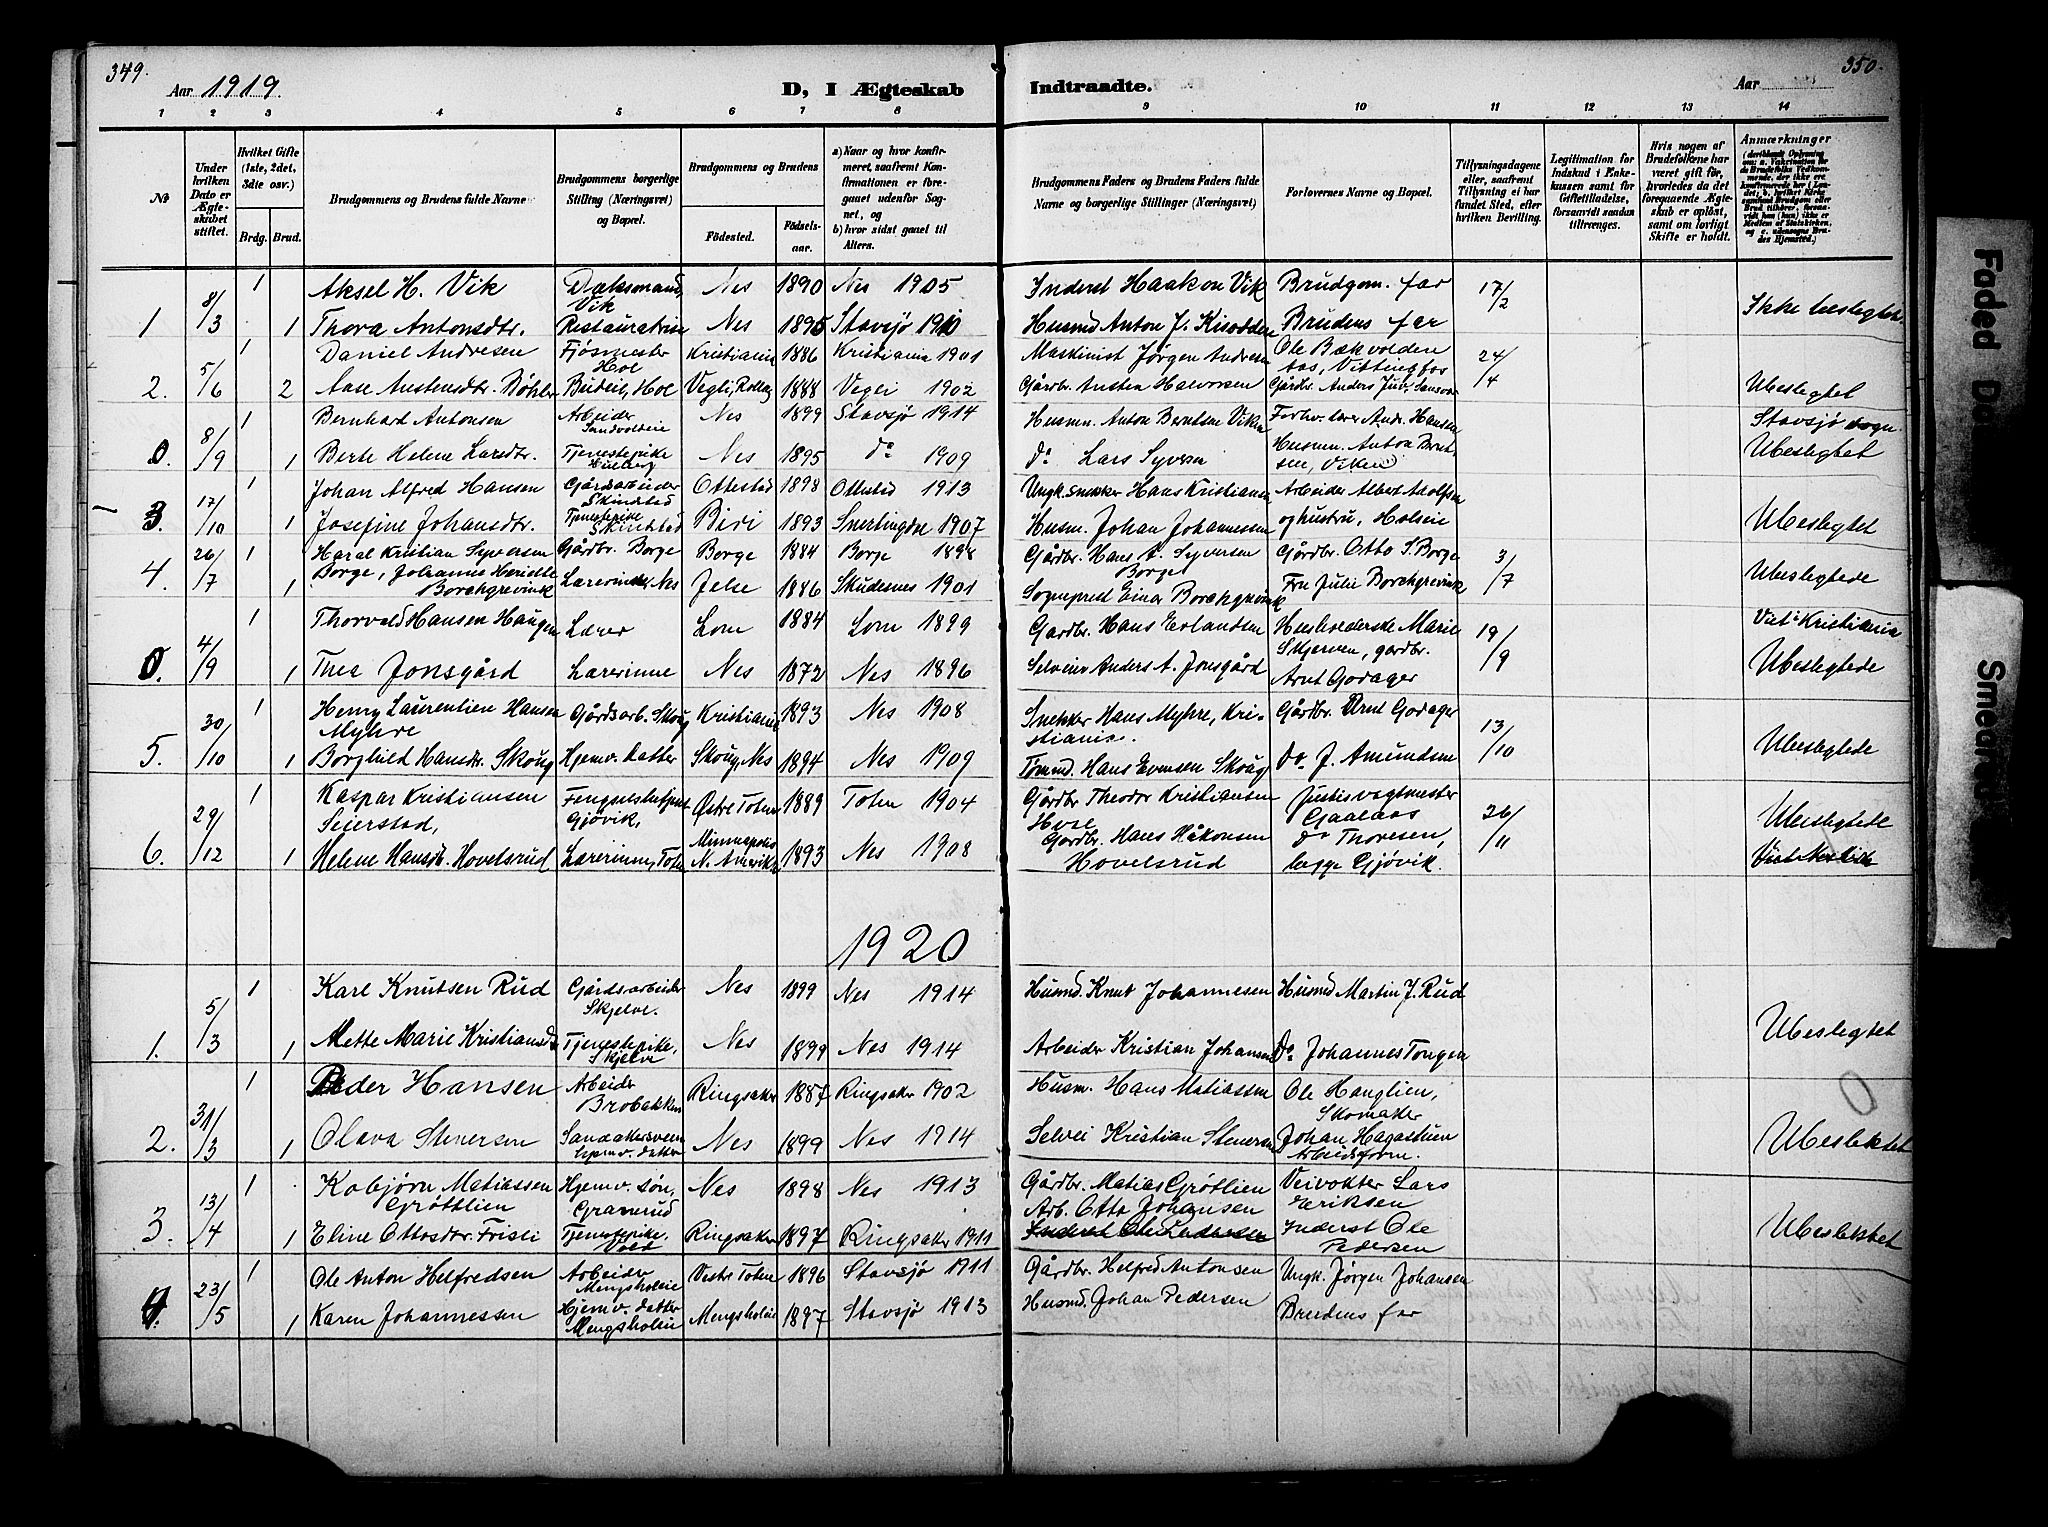 349.
350.
Aar 1919.
D, I Ægteskab Indtraadte.
Aar
1 2 3 4 5 6 7 8 9 10 11 12 13 14
No
Under hvilken Dato er Ægteskabet stiftet.
Hvilket Gifte (1ste, 2det, 3die osv.)
Brdg. Brud.
Brudgommens og Brudens fulde Navne
Brudgommens borgerlige Stilling (Næringsvei) og Bopæl.
Brudgommens og Brudens
Fødested. Fødselsaar.
a) Naar og hvor konfirmeret, saafremt Konfirmationen er foregaaet udenfor Sognet, og
b) hvor sidst gaaet til Alters.
Brudgommens Faders og Brudens Faders fulde Navne og borgerlige Stillinger (Næringsvei)
Forlovernes Navne og Bopæl.
Tillysningsdagene eller, saafremt Tillysning ei har fundet Sted, efter hvilken Bevilling.
Legitimation for Indskud i Enkekassen samt for Giftetilladelse, forsaavidt saadan tiltrænges.
Hvis nogen af Brudefolkene har været gift før, hvorledes da det foregaaende Ægteskab er opløst, samt om lovligt Skifte er holdt.
Anmærkninger
1 8/3 1 Aksel H. Vik Dæksmand, Vik Nes 1890 Nes 1905 Inderst Haakon Vik Brudgom. far 17/2 Ikke beslegtet.
1 Thora Antonsdtr. Nes 1895 Stavsjø 1910 Husmd Anton J. Brudens far
2. 5/6 1 Daniel Andresen Fjøsmester Hol Kristiania 1886 Kristiania 1901 Maskinist Jørgen Andresen Ole Bækvolden 24/4 Ubeslegtet
2 Aase Austensdtr. Bøhler Budeie, Hol Vegli, Rollag 1888 Vegli 1902 Gårdbr. Austen Halvorsen Gårdbr. Anders Juv,
0. 8/9 1 Bernhard Antonsen Arbeider Nes 1899 Stavsjø 1914 Husmn. Anton Berntsen Viken Forhv. lærer Andr. Hansen Stavsjø sogn
1 Berte Helene Larsdtr. Tjenestepike Nes 1895 do 1909 Do Lars Syversen Husmn. Anton Berntsen, Viken Ubeslegtet
3. 17/10 1 Johan Alfred Hansen Gårdsarbeider Skinstad Ottestad 1898 Ottestad 1913 Ungk. snekker Hans Kristiansen Arbeider Albert Adolfsen
1 Josefine Johansdtr. Tjenestepike Skinstad Biri 1893 Snertingdal 1907 Husm. Johan Johannessen og hustru, Holseie Ubeslegtet
4. 26/7 1 Haral Kristian Syversen Borge, Gårdbr. Borge Borge 1884 Borge 1898 Gårdbr. Hans A. Syversen Borge Gårdbr. Otto S. Borge 3/7 Ubeslegtede
1 Johanne Henriette Borchgrevink Lærerinde, Nes Jelse 1886 Skudesnes 1901 Sogneprest Einar Borchgrevink Fru Julie Borchgrevink
0. 4/9 1 Thorvald Hansen Haugen Lærer Lom 1884 Lom 1899 Gardbr. Hans Erlandsen Husholderske Marie 19/9 Viet i Kristiania
1 Thea Jonsgård Lærerinne Nes 1872 Nes 1896 Selveier Anders A. Jonsgård Skjerven, gardbr. Arnt Godager Ubeslegtede
5. 30/10 1 Henry Laurentien Hansen Myhre Gårdsarb. Skoug Kristiania 1893 Nes 1908 Snekker Hans Myhre, Kristiania. Gårdbr. Arnt Godager 13/10 Ubeslegtede
1 Borghild Hansdtr. Skoug Hjemv. datter Skoug, Nes 1894 Nes 1909 Tømmd. Hans Evensen Skoug Do J. Amundsen
6. 29/12 1 Kaspar Kristiansen Seierstad, Fengselsbetjent Gjøvik, Østre Toten 1889 Toten 1904 Gårdbr. Theodor Kristiansen Justisvagtmester Gaalaas 26/11 Ubeslegtede
1 Helene Hansdtr. Hovelsrud Lærerinne, Toten Minneapolis N. Amerika 1893 Nes 1908 Gårdbr. Hans Håkonsen Hovelsrud Do Thoresen, begge Gjøvik.
1920
1. 5/3 1 Karl Knutsen Rud Gårdsarbeider Skjelve. Nes 1899 Nes 1914 Husmd. Knut Johannesen Husmd Martin J. Rud Ubeslegtet
1 Mette Marie Kristiansdtr Tjenestepike, Skjelve Nes 1899 Nes 1914 Arbeider Kristian Johansen Do Johannes Tongen
2. 31/3 1 Peder Hansen Arbeider Brobakken Ringsaker 1887 Ringsaker 1902 Husm. Hans Matiassen Ole Hanglien, Skomaker 0
1 Olava Stenersen Sandakersveen hjemv. datter Nes 1899 Nes 1914 Selvei Kristian Stenersen Johan Hagastuen Arbeidsform. Ubeslektet
3. 13/4 1 Kobjørn Matiassen Grøtlien Hjemv. søn, Granerud Nes 1898 Nes 1913 Gårdbr. Matias Grøtlien Veivokter Lars Eriksen Ubeslektet
1 Eline Ottosdtr. Fristi Tjenestepike, Vold Ringsaker 1897 Ringsaker 1911 Arb. Otto Johansen Inderst Ole Pedersen
4. 23/5 1 Ole Anton Helfredsen Arbeider Mengsholeie Vestre Toten 1896 Stavsjø 1911 Gårdbr. Helfred Antonsen Ungk. Jørgen Johansen
1 Karen Johannessen Hjemv. datter Mengsholeie Mengsholeie 1897 Stavsjø 1913 Husmd. Johan Pedersen Brudens far